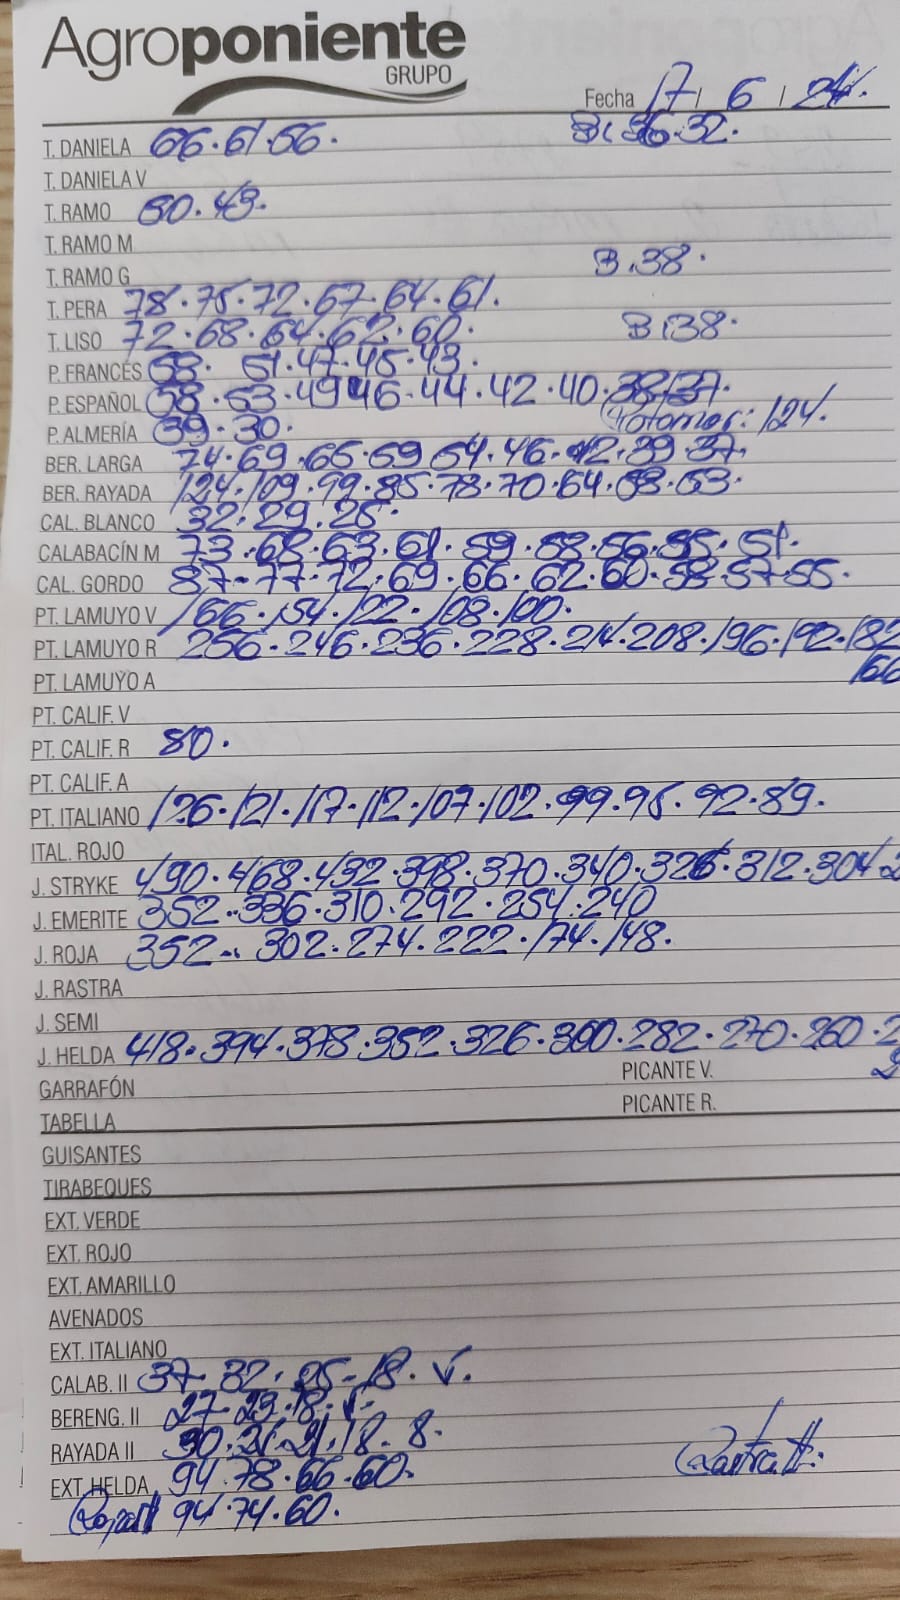 Agroponiente
GRUPO
Fecha 17 / 6 / 24.
T. DANELA 66.61.56. B: 36.32.
T. DANIELA V
T. RAMO 50.43.
T. RAMO M
T. RAMO G B.38.
T. PERA 78.75.72.67.64.61.
T. LISO 72.68.64.62.60. B:38.
P. FRANCÉS 53. 51.47.45.43.
P. ESPAÑOL 58.53.49 46.44.42.40.38/37.
P. ALMERÍA 39.30. : 124.
BER. LARGA 74.69.65.59 54.46.42.39.37.
BER. RAYADA 124.109.99.85.78.70.64.58.53.
CAL. BLANCO 32.29.25.
CALABACÍN M 73.68.63.61.59.58.56.55.51.
CAL. GORDO 87-77.72.69.66.62.60.58.57.55.
PT. LAMUYO V 166.154.122.108.100.
PT. LAMUYO R 256.246.236.228.214.208.196.192.182
166
PT. LAMUYO A
PT. CALIF. V
PT. CALIF. R 80.
PT. CALIF. A
PT. ITALIANO 126.121.117.112.107.102.99.95.92.89.
ITAL. ROJO
J. STRYKE 490.468.432.398.370.340.326.312.304.2
J. EMERITE 352..336.310.292.254.240
J. ROJA 352.. 302.274.222.174.148.
J. RASTRA
J. SEMI
J. HELDA 418.394.378.352.326.300.282.270.260.2
GARRAFÓN PICANTE V. 2
TABELLA PICANTE R.
GUISANTES
TIRABEQUES
EXT. VERDE
EXT. ROJO
EXT. AMARILLO
AVENADOS
EXT. ITALIANO
CALAB. II 37-32.25-18.V.
BERENG. II 27-23.18.
RAYADA II 30.21.18.8.
EXT. HELDA 94.78.66.60.
94.74.60.